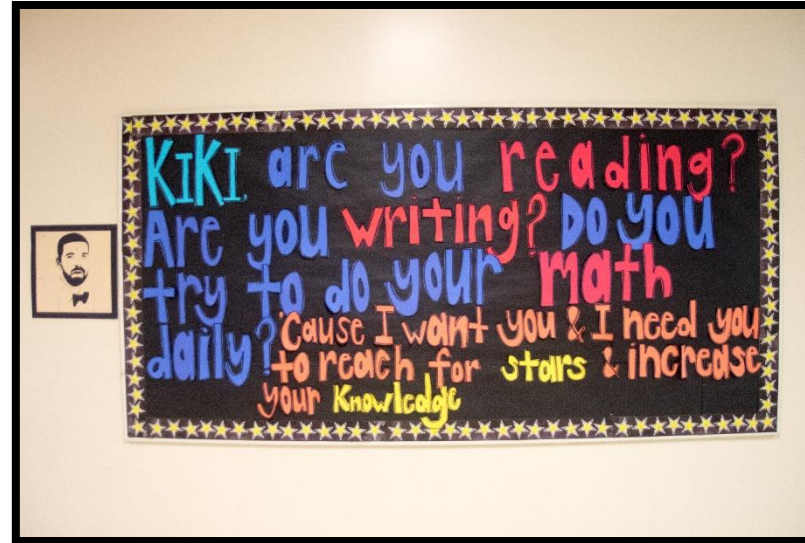 KIKI, are you reading?
Are you writing? Do you
try to do your math
daily? 'Cause I want you & I need you
to reach for stars & increase
your Knowledge